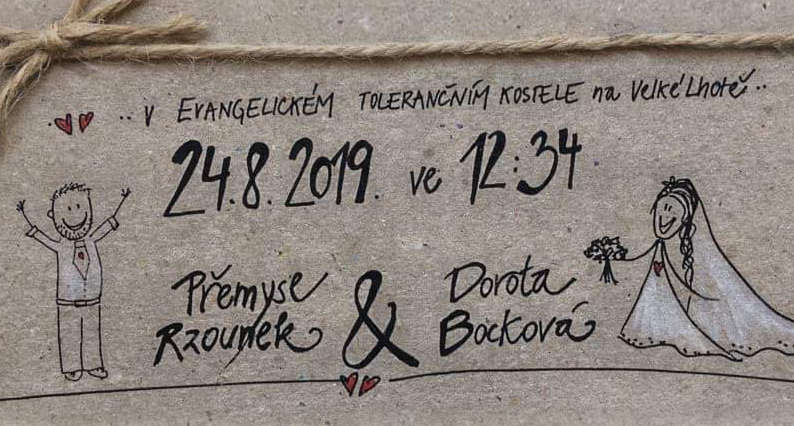 .. v EVANGELICKÉM TOLERANČNÍM KOSTELE na Velké Lhotě..
24.8.2019. ve 12:34
Přemysl & Dorota
Rzounek Bocková